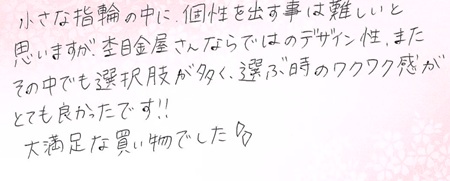 小さな指輪の中に、個性を出す事は難しいと
思いますが、杢目金屋さんならではのデザイン性、また
その中でも選択肢が多く、選ぶ時のワクワク感が
とても良かったです!!
大満足な買い物でした